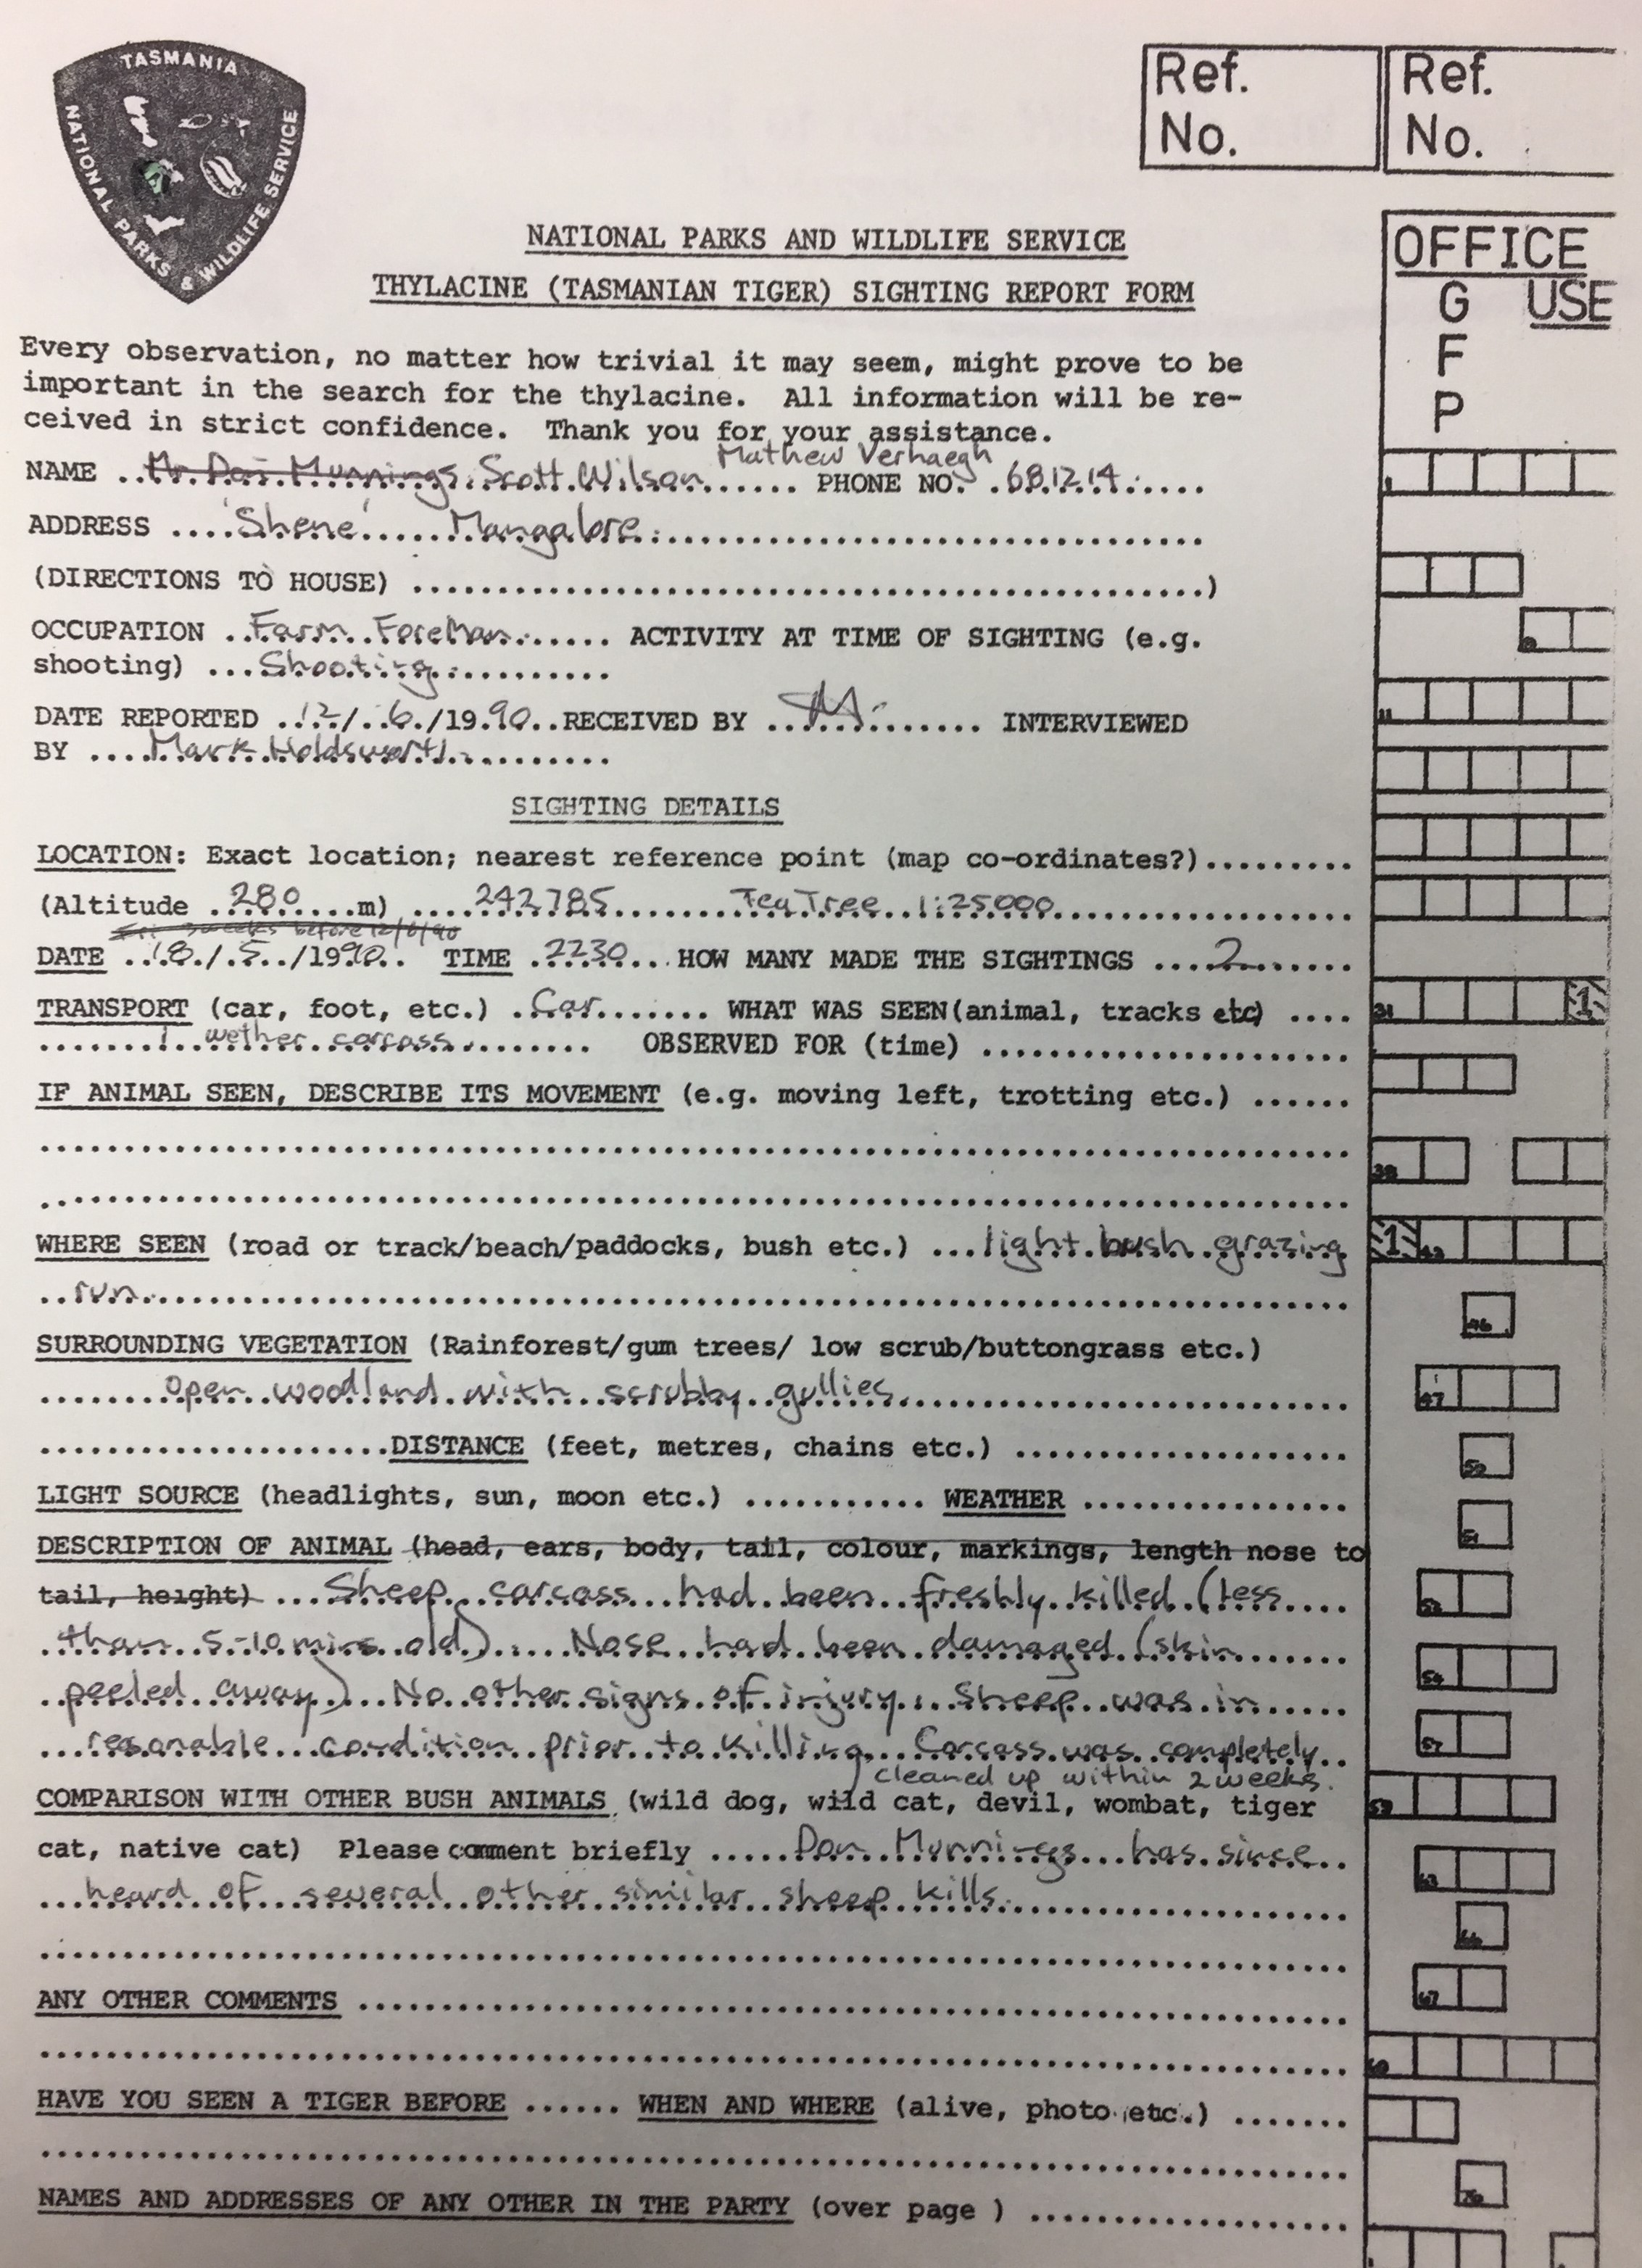 TASMANIA
NATIONAL PARKS & WILDLIFE SERVICE
Ref. No.
Ref. No.
OFFICE USE
G
F
P
NATIONAL PARKS AND WILDLIFE SERVICE
THYLACINE (TASMANIAN TIGER) SIGHTING REPORT FORM
Every observation, no matter how trivial it may seem, might prove to be
important in the search for the thylacine. All information will be re-
ceived in strict confidence. Thank you for your assistance.
Mathew Verhaegh
NAME ..Mr Don Munnings Scott Wilson...... PHONE NO. .681214.....
ADDRESS ....'Shene'..... Mangalore...............
(DIRECTIONS TO HOUSE) ...............)
OCCUPATION ..Farm Foreman...... ACTIVITY AT TIME OF SIGHTING (e.g.
shooting) ...Shooting..........
DATE REPORTED ..12/..6./19.90..RECEIVED BY ............ INTERVIEWED
BY ....Mark Holdsworth.........
SIGHTING DETAILS
LOCATION: Exact location; nearest reference point (map co-ordinates?).........
(Altitude ..280....m) ....242785.......Tea Tree 1:25000...............
Fri 3 weeks before 12/6/90
DATE ..18./.5../1990.. TIME .2230...HOW MANY MADE THE SIGHTINGS ....2.......
TRANSPORT (car, foot, etc.) .Car....... WHAT WAS SEEN(animal, tracks etc) ....
.......1 wether carcass........ OBSERVED FOR (time) ...............
IF ANIMAL SEEN, DESCRIBE ITS MOVEMENT (e.g. moving left, trotting etc.) ......
WHERE SEEN (road or track/beach/paddocks, bush etc.) ...light bush grazing
..run...............
SURROUNDING VEGETATION (Rainforest/gum trees/ low scrub/buttongrass etc.)
.......Open woodland with scrubby gullies...............
...............DISTANCE (feet, metres, chains etc.) ...............
LIGHT SOURCE (headlights, sun, moon etc.) ........... WEATHER ...............
DESCRIPTION OF ANIMAL (head, ears, body, tail, colour, markings, length nose to
tail, height) ...Sheep carcass had been freshly killed (less....
.than 5-10 mins old).... Nose had been damaged (skin......
..peeled away)...No other signs of injury... Sheep was in.....
...resonable condition prior to killing. Carcass was completely..
cleaned up within 2 weeks.
COMPARISON WITH OTHER BUSH ANIMALS (wild dog, wild cat, devil, wombat, tiger
cat, native cat) Please comment briefly .....Don Munnings...has since..
...heard of several other similar sheep kills...............
ANY OTHER COMMENTS ...............
HAVE YOU SEEN A TIGER BEFORE ...... WHEN AND WHERE (alive, photo etc.) .......
NAMES AND ADDRESSES OF ANY OTHER IN THE PARTY (over page ) ...............
1
11
31
1
38
1
43
46
47
50
51
52
54
57
59
63
66
67
76